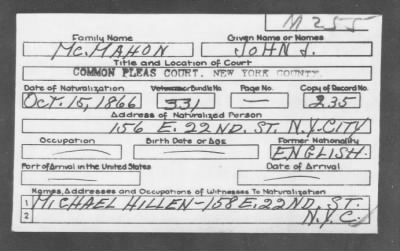 M 255
Family Name Given Name or Names
McMAHON JOHN J.
Title and Location of Court
COMMON PLEAS COURT, NEW YORK COUNTY
Date of Naturalization Volume or Bundle No. Page No. Copy of Record No.
OCT. 15, 1866 331 — 235
Address of Naturalized Person
156 E. 22ND. ST. N.Y. CITY
Occupation Birth Date or Age Former Nationality
ENGLISH.
Port of Arrival in the United States Date of Arrival
Names, Addresses and Occupations of Witnesses To Naturalization
1 MICHAEL HILLEN—158 E. 22ND. ST.
2 N.Y.C.